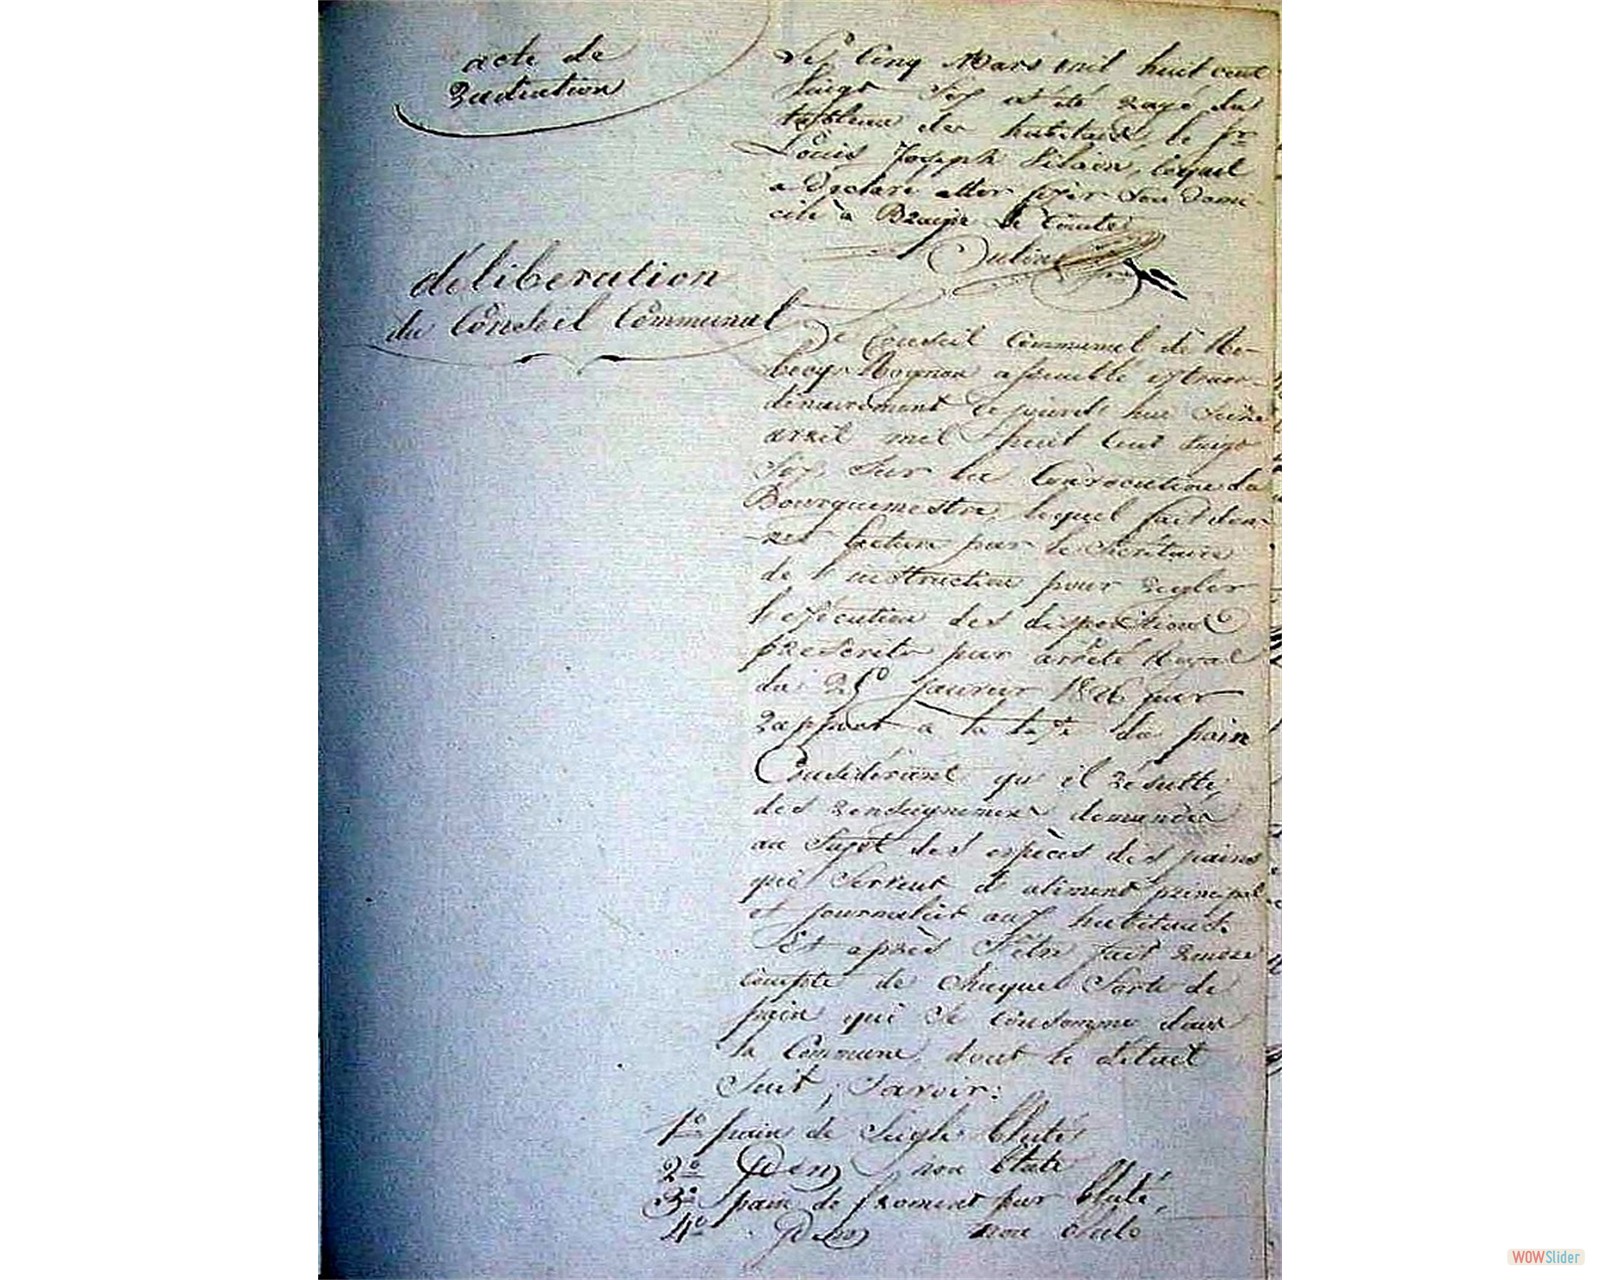 acte de
Radiation
Le Cinq Mars mil huit cent
Vingt Six at été rayé du
tableau des habitans, le Sr
Louis Joseph Vilain, lequel
a déclaré aller fixer Son domi-
cile à Braine le Comte
déliberation
du Conseil Communal
Le Conseil Communal de Re-
becq-Rognon assemblé extraor-
dinairement le jourd'hui
avril mil huit Cent Vingt
Six, Sur la Convocation du
Bourguemestre, lequel fait don-
ner lecture par le Secrétaire
de l'instruction pour régler
l'exécution des dispositions
prescrite par arrêté Royal
du 25 Janvier 1826 par
rapport à la taxe du pain
Considérant qu'il résulte,
des renseignemens demandés
au Sujet des espèces des pains
qui Servent d'aliment principal
et journalier aux habitans.
Et après S'être fait rendre
compte de chaque Sorte de
pain qui Se consomme dans
la Commune, dont le détail
Suit, Savoir:
1º pain de Seigle bluté
2º Idem non bluté
3º pain de froment pur bluté,
4º Idem non
WOWSlider